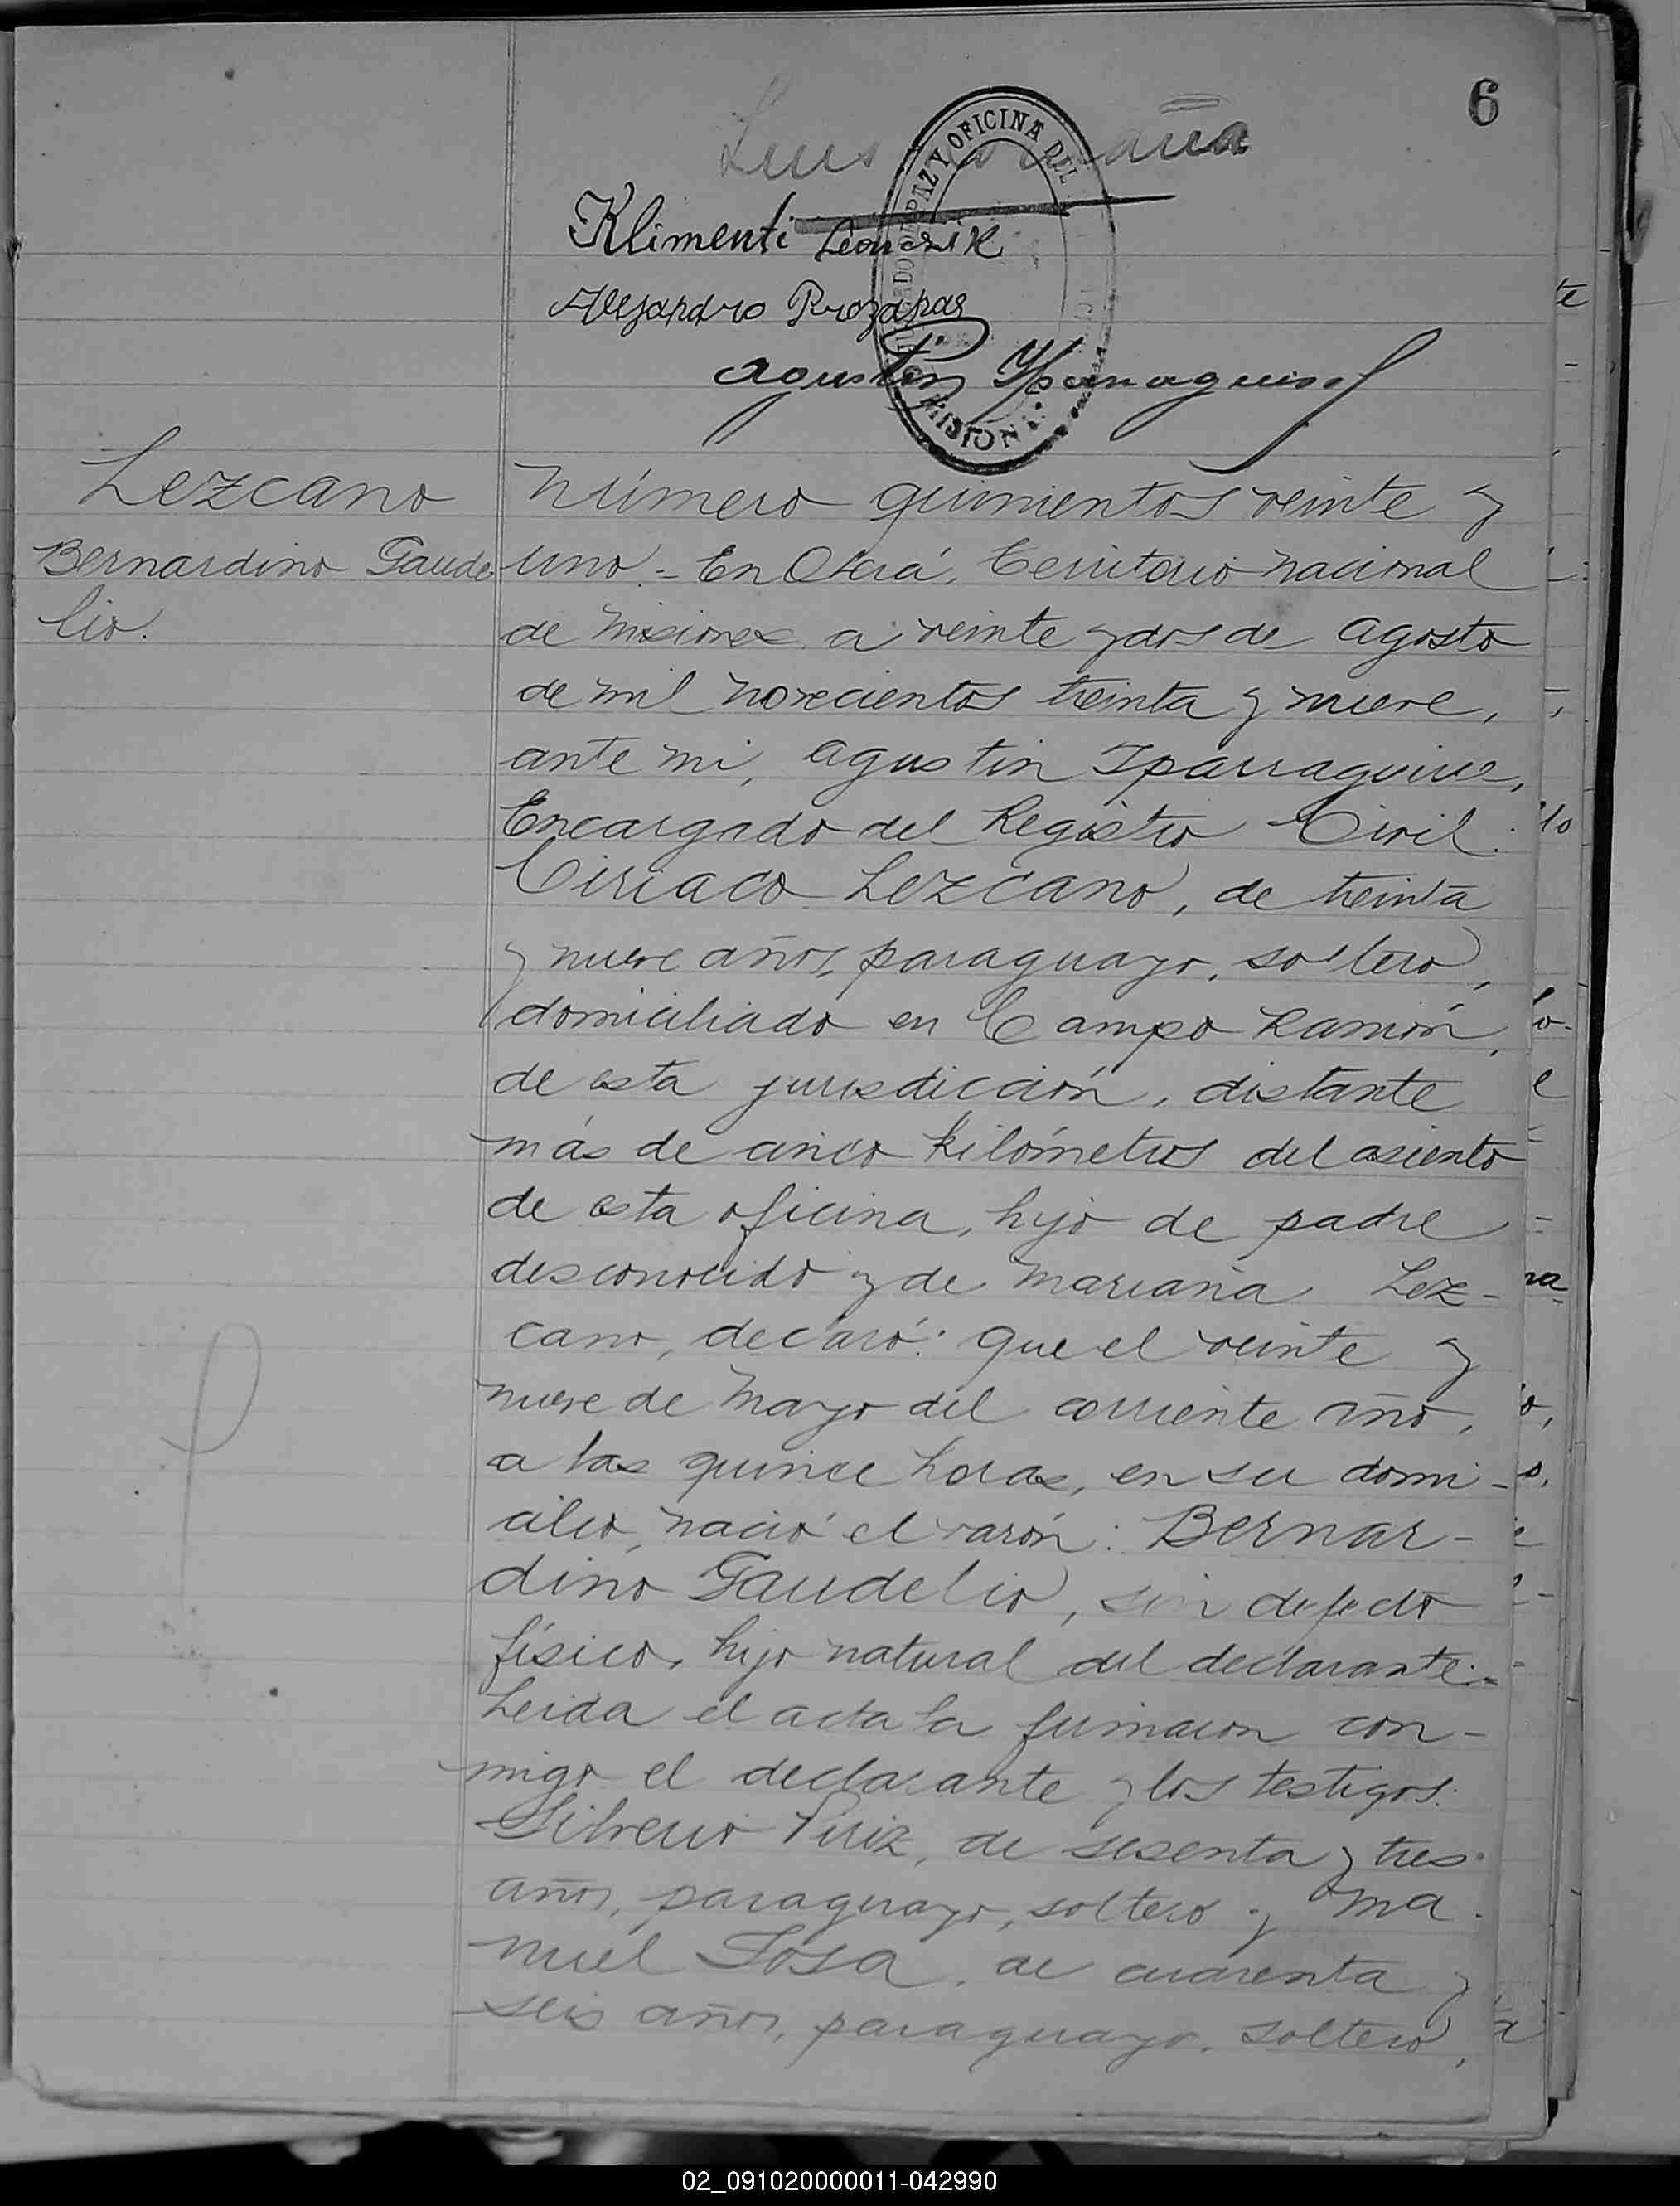 6
Luis
JUZGADO DE PAZ Y OFICINA DEL
MISIONES
Klimenti
Alejandro
Agustin Yparraguirre
Lezcano
Bernardino Gaude
lio.
Número quinientos veinte y
uno - En Oberá, Territorio nacional
de Misiones a veinte y dos de Agosto
de mil novecientos treinta y nueve,
ante mi, Agustin Yparraguirre,
Encargado del Registro Civil.
Ciriaco Lezcano, de treinta
y nueve años, paraguayo, soltero,
domiciliado en Campo Ramón,
de esta jurisdicción, distante
más de cinco kilómetros del asiento
de esta oficina, hijo de padre
desconocido y de Mariana Lez-
cano, declaró: Que el veinte y
nueve de Mayo del corriente año,
a las quince horas, en su domi-
cilio, nació el varón: Bernar-
dino Gaudelio, sin defecto
físico, hijo natural del declarante.-
Leida el acta la firmaron con-
migo el declarante y los testigos:
Silverio Piriz, de sesenta y tres
años, paraguayo, soltero y Ma-
nuel Sosa, de cuarenta y
seis años, paraguayo, soltero,
02_091020000011-042990